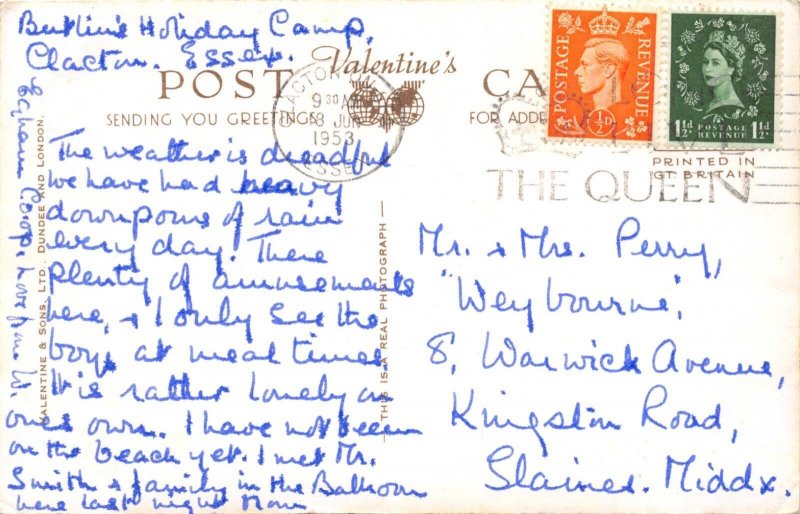 Butlins Holiday Camp,
Clacton. Essex.
POST CARD
Valentine's
SENDING YOU GREETINGS
FOR ADDRE
CLACTON
9 30 AM
8 JUN
1953
ESSEX
POSTAGE REVENUE
½D
1½D POSTAGE REVENUE 1½D
PRINTED IN
GT. BRITAIN
THE QUEEN
The weather is dreadful
we have had heavy
downpours of rain
every day. There
plenty of amusements
here, & I only see the
boys at meal times
It is rather lonely on
ones own. I have not been
on the beach yet. I met Mr.
Smith & family in the Ballroom
here last night
Egham Co-op. Love from W.
VALENTINE & SONS, LTD., DUNDEE AND LONDON.
THIS IS A REAL PHOTOGRAPH
Mr. & Mrs. Perry,
"Weybourne",
8, Warwick Avenue,
Kingston Road,
Staines. Middx.